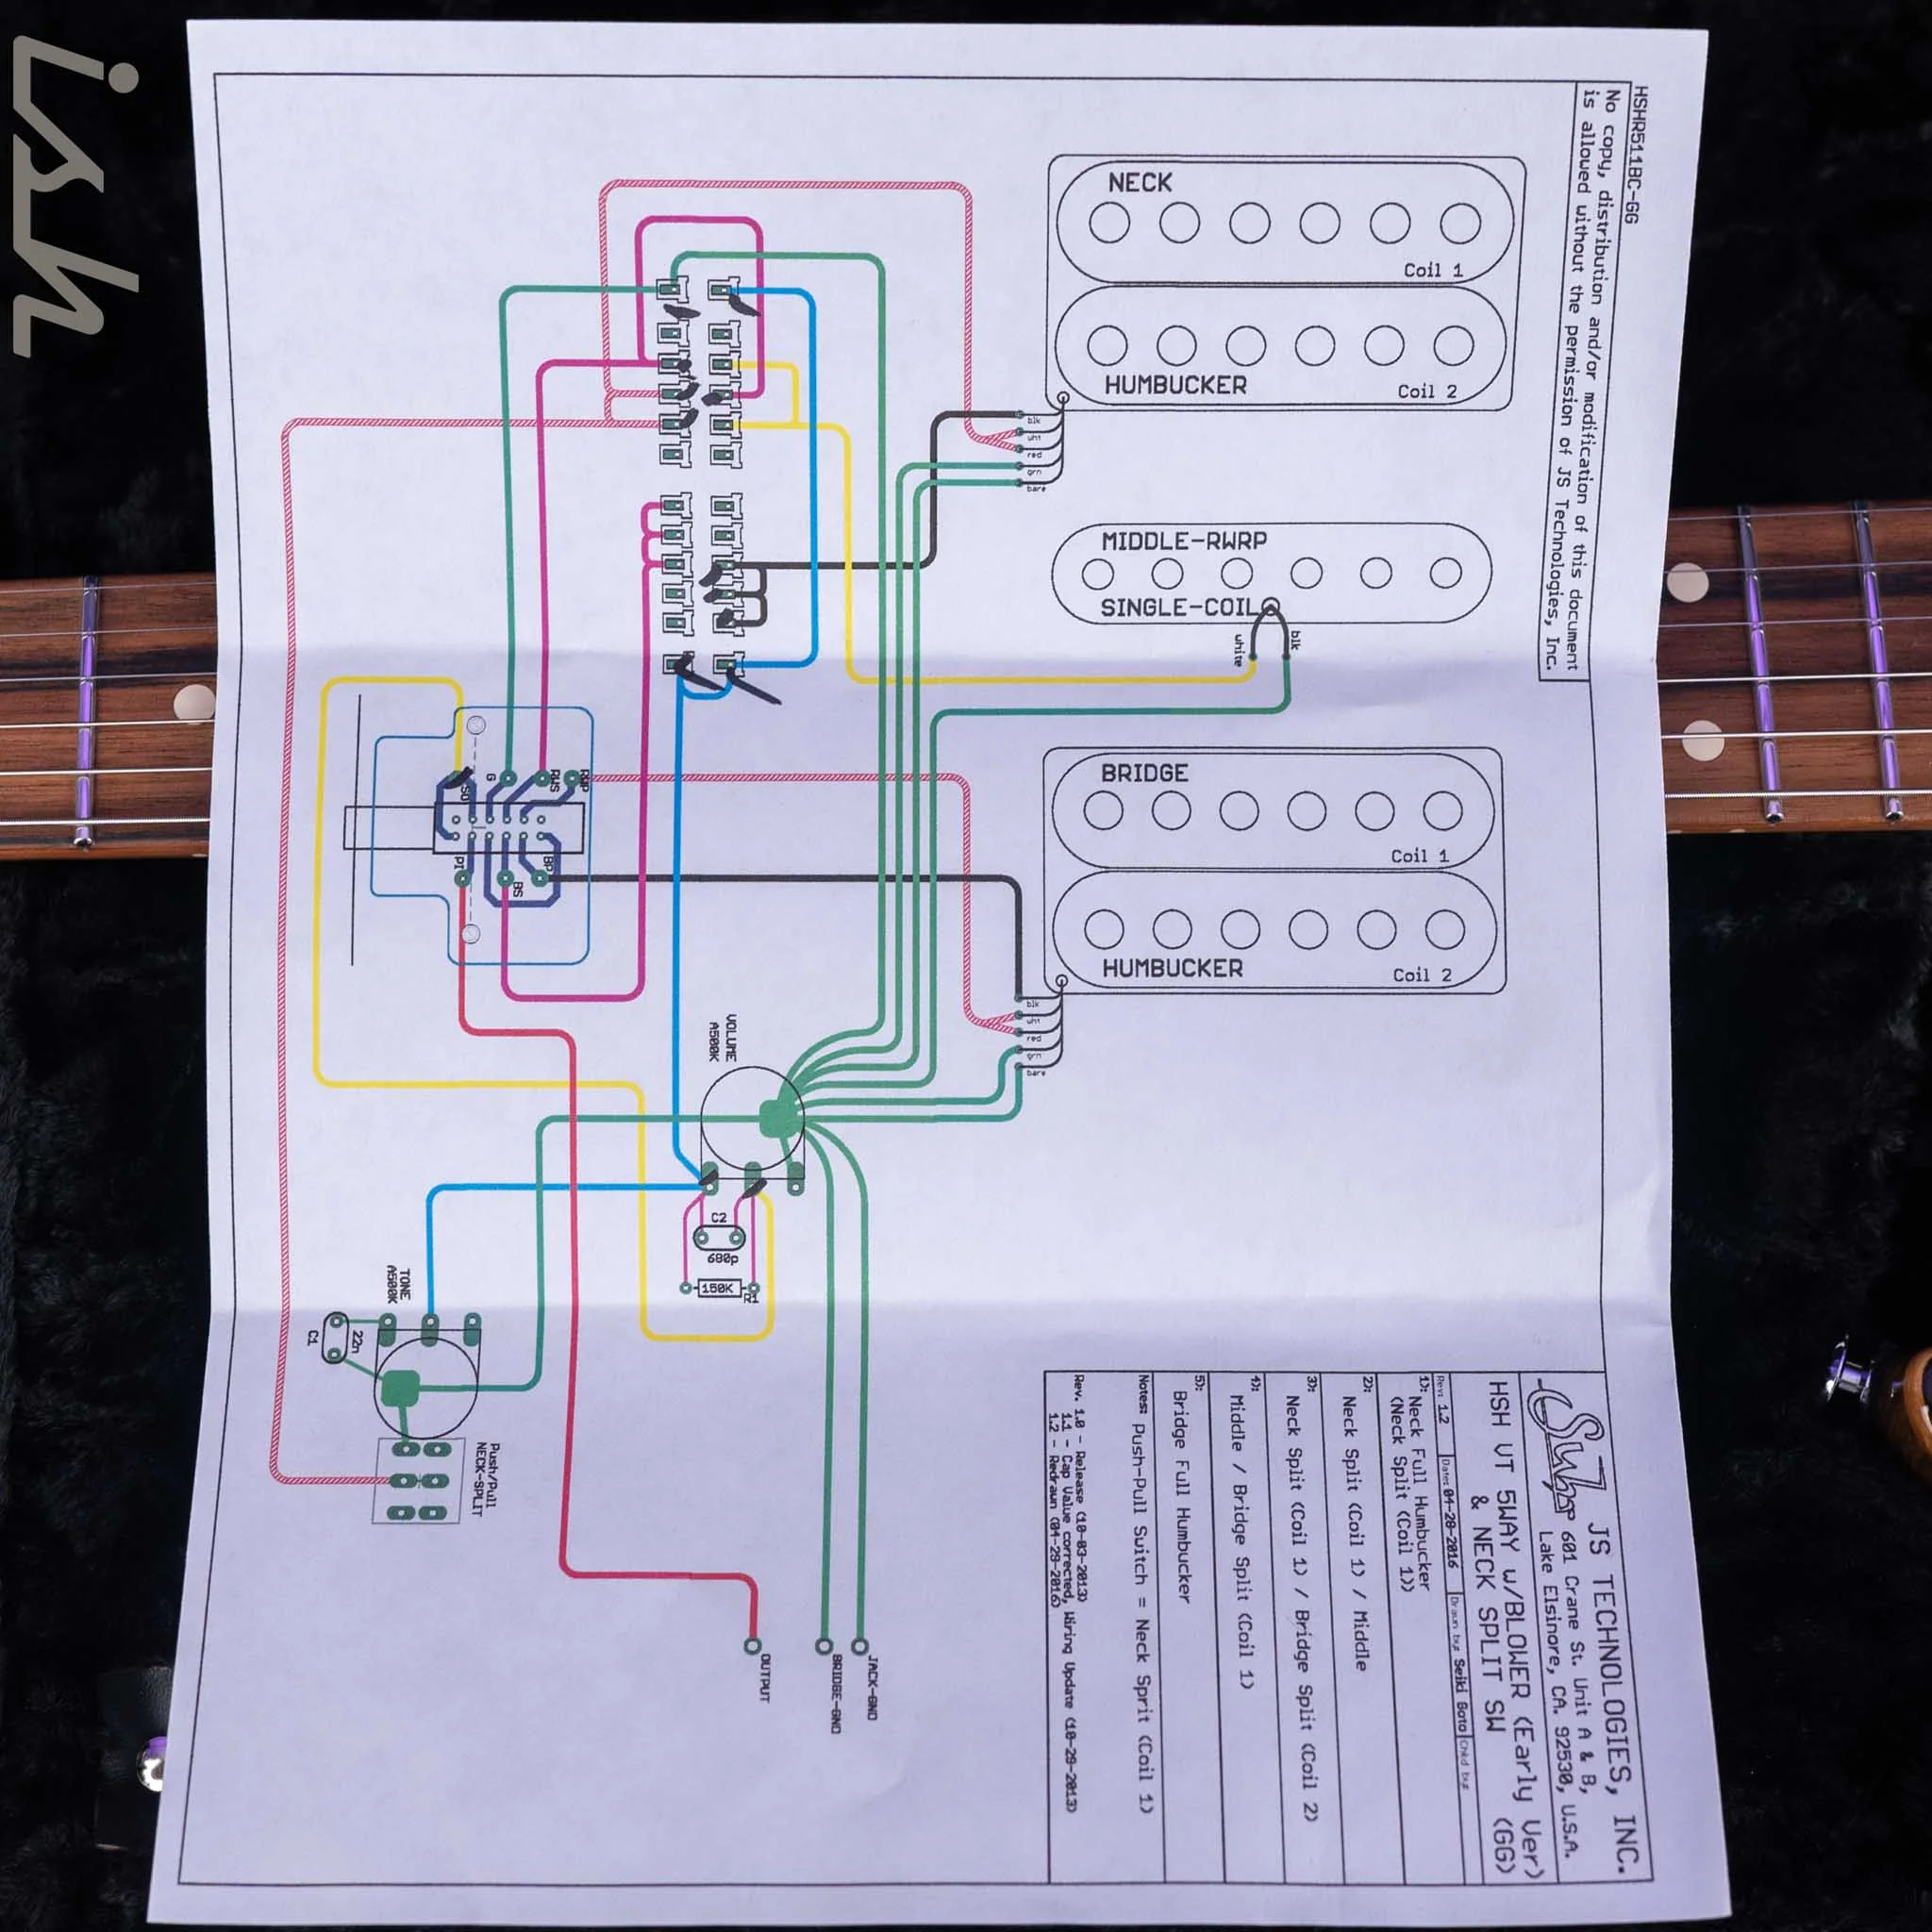 ish
HSHR511BC-GG
No copy, distribution and/or modification of this document
is allowed without the permission of JS Technologies, Inc.
NECK
Coil 1
HUMBUCKER
Coil 2
blk
wht
red
grn
bare
MIDDLE-RWRP
SINGLE-COIL
white
blk
BRIDGE
Coil 1
HUMBUCKER
Coil 2
blk
wht
red
grn
bare
G
RWS
RWP
SO
PI
BS
BP
VOLUME
A500K
C2
680p
150K
R1
TONE
A500K
C1
22n
Push/Pull
NECK-SPLIT
OUTPUT
BRIDGE-GND
JACK-GND
Suhr
JS TECHNOLOGIES, INC.
601 Crane St. Unit A & B,
Lake Elsinore, CA. 92530, U.S.A.
HSH VT 5WAY w/BLOWER (Early Ver)
& NECK SPLIT SW (GG)
Rev: 1.2 Date: 04-28-2016 Drawn by: Seiki Goto Chkd by:
1): Neck Full Humbucker
(Neck Split (Coil 1))
2): Neck Split (Coil 1) / Middle
3): Neck Split (Coil 1) / Bridge Split (Coil 2)
4): Middle / Bridge Split (Coil 1)
5): Bridge Full Humbucker
Notes: Push-Pull Switch = Neck Sprit (Coil 1)
Rev. 1.0 - Release (10-03-2013)
1.1 - Cap Value corrected, Wiring Update (10-29-2013)
1.2 - Redrawn (04-29-2016)